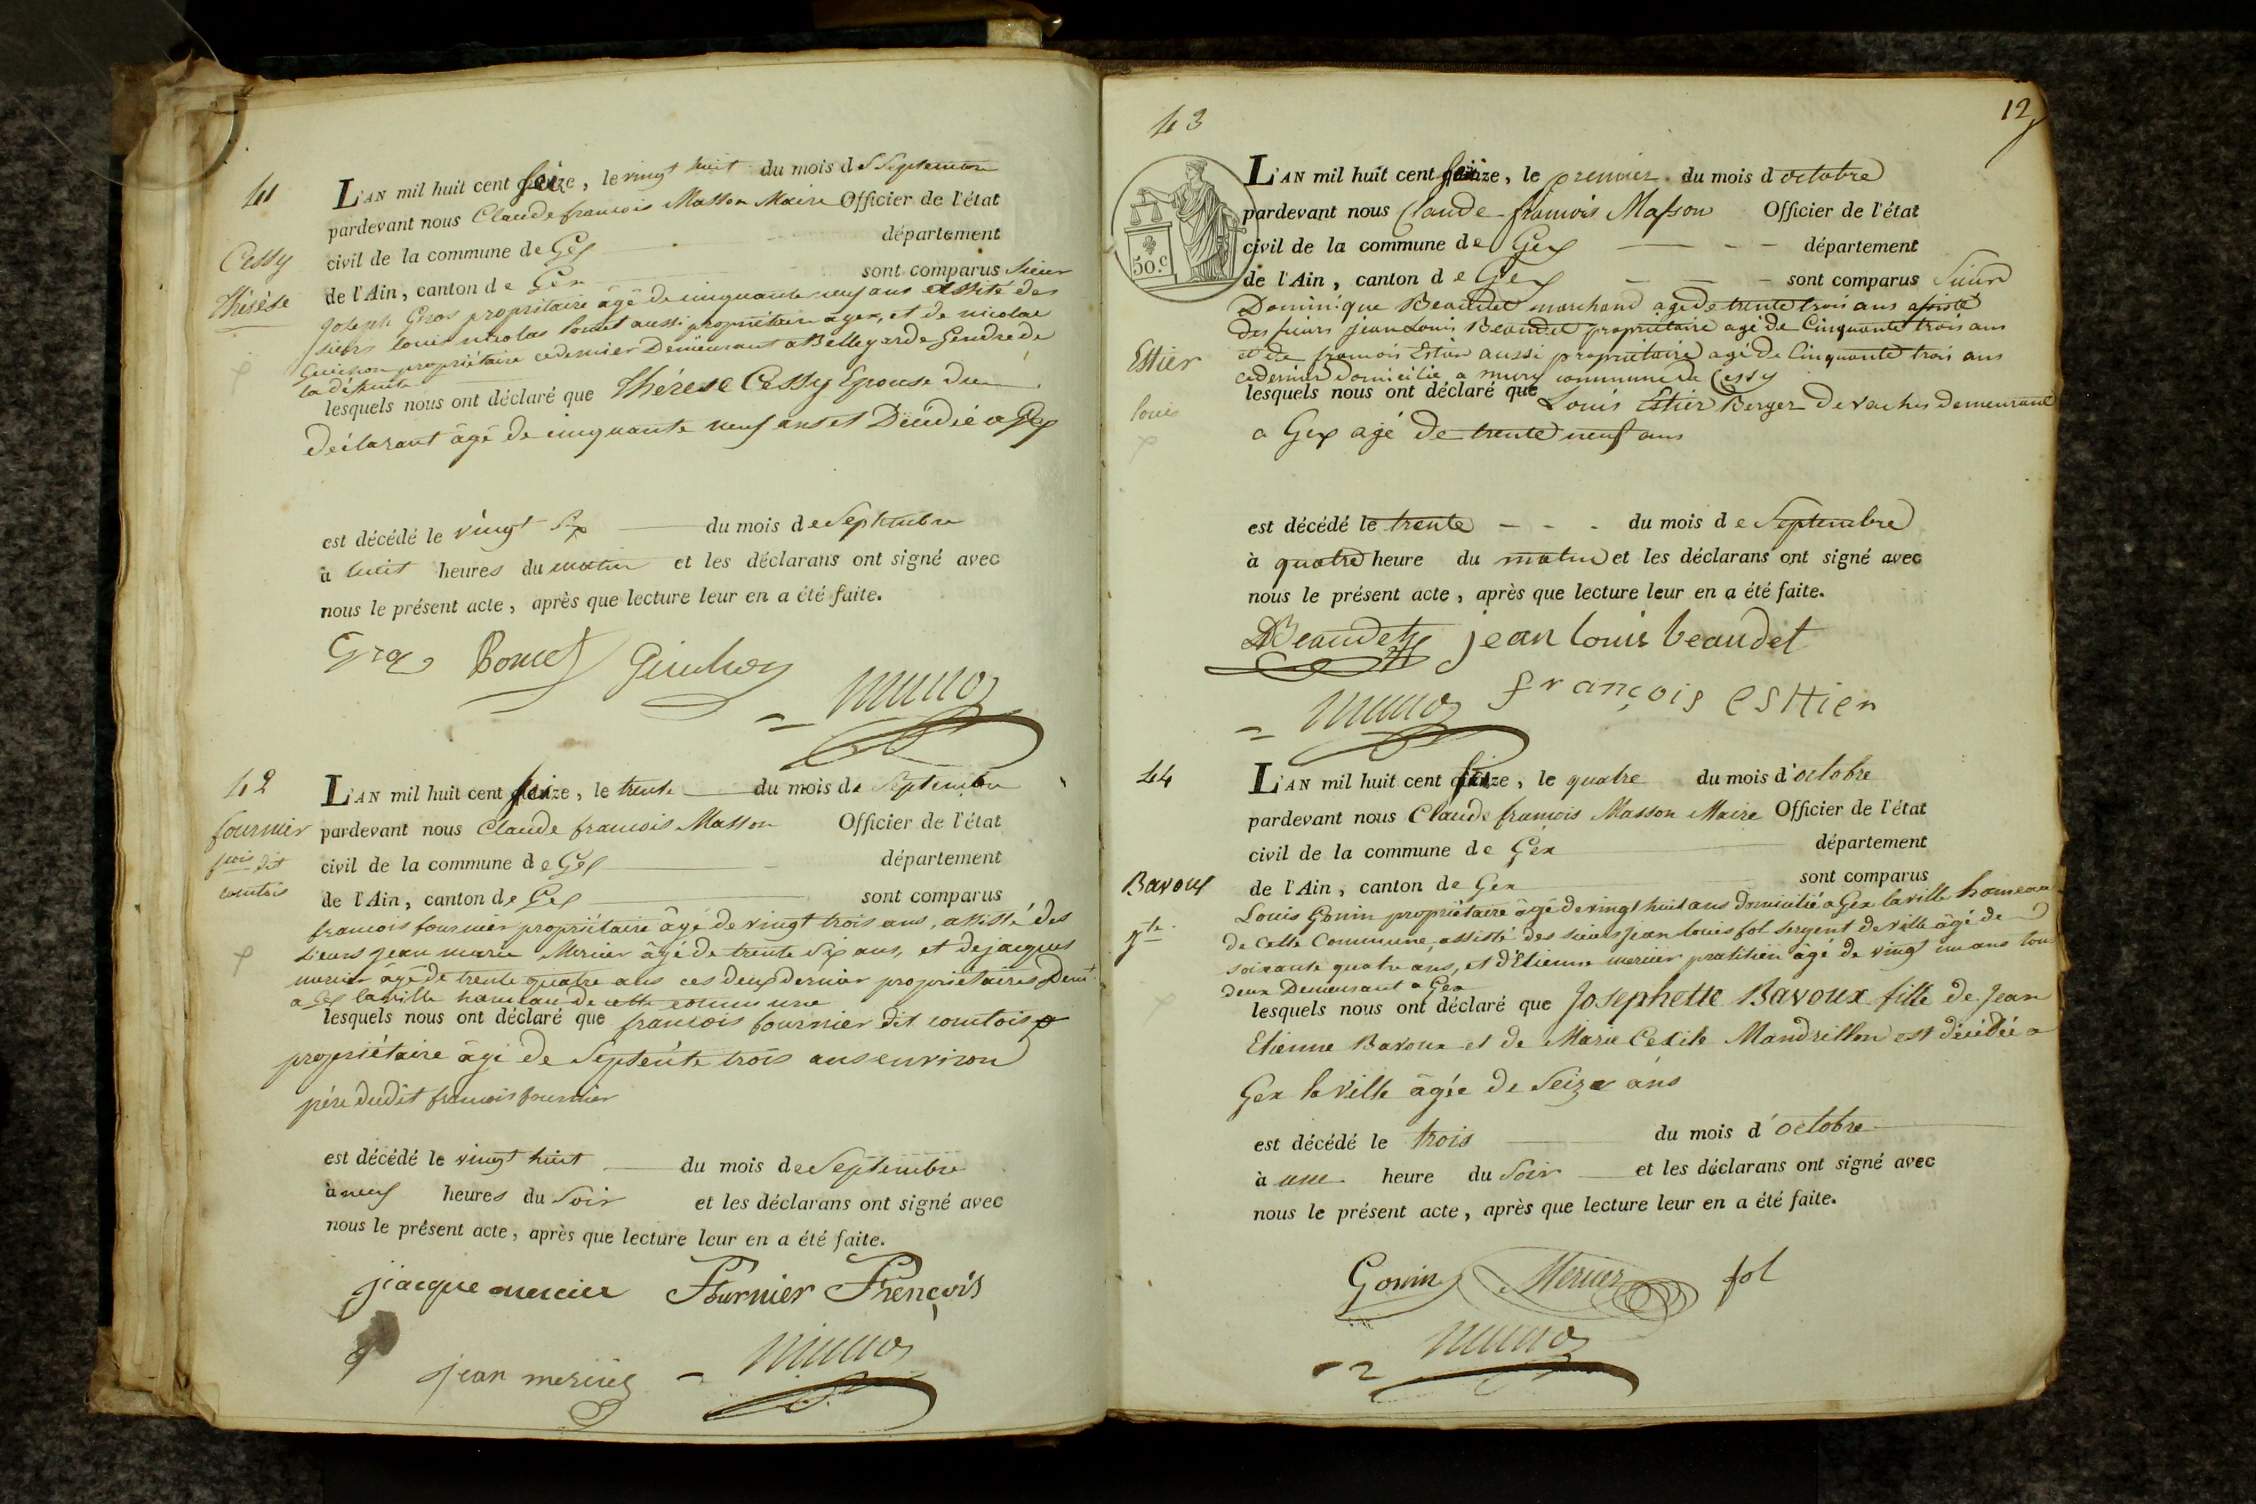 41
Cessy
Thérèse
L'AN mil huit cent seize, le vingt huit du mois de Septembre
pardevant nous Claude francois Masson Maire Officier de l'état
civil de la commune de Gex département
de l'Ain, canton de Gex sont comparus Sieur
Joseph Gros propriétaire âgé de cinquante neuf ans assisté des
sieurs louis nicolas Poncet aussi propriétaire a gex, et de nicolas
Guichon propriétaire ce dernier Demeurant a Bellegarde Gendre de
la défunte
lesquels nous ont déclaré que Thérèse Cessy Epouse du
déclarant âgé de cinquante neuf ans est Décédié a Gex
est décédé le vingt six du mois de Septembre
à huit heures du matin et les déclarans ont signé avec
nous le présent acte, après que lecture leur en a été faite.
Gros Poncet Guichon
42
fournier
fçois dit
comtois
L'AN mil huit cent seize, le trente du mois de Septembre
pardevant nous Claude francois Masson Officier de l'état
civil de la commune de Gex département
de l'Ain, canton de Gex sont comparus
francois fournier propriétaire âgé de vingt trois ans, assisté des
sieurs jean marie Mercier âgé de trente six ans, et de jacques
mercier âgé de trente quatre ans ces deux dernier propriétaires Demt
a Gex la ville hameau de cette commune
lesquels nous ont déclaré que francois fournier dit comtois
propriétaire âgé de Septente trois ans environ
père dudit francois fournier
est décédé le vingt huit du mois de Septembre
à neuf heures du Soir et les déclarans ont signé avec
nous le présent acte, après que lecture leur en a été faite.
jacque mercier Fournier Françovis
jean mercier
12
43
50.c
Esttier
louis
L'AN mil huit cent seize, le premier du mois d octobre
pardevant nous Claude francois Masson Officier de l'état
civil de la commune de Gex département
de l'Ain, canton de Gex sont comparus Sieur
Dominique Beaudet marchand agé de trente trois ans assisté
des sieurs jean Louis Beaudet propriétaire agé de Cinquante trois ans
et de francois Estier aussi propriétaire agé de Cinquante trois ans
ce dernier domicilié a mury commune de Cessy
lesquels nous ont déclaré que Louis Estier Berger de vaches demeurant
a Gex agé de trente neuf ans
est décédé le trente du mois de Septembre
à quatre heure du matin et les déclarans ont signé avec
nous le présent acte, après que lecture leur en a été faite.
DBeaudet jean louis beaudet
françois esttier
44
Bavoux
jte
L'AN mil huit cent seize, le quatre du mois d'octobre
pardevant nous Claude francois Masson Maire Officier de l'état
civil de la commune de Gex département
de l'Ain, canton de Gex sont comparus
Louis Gonin propriétaire âgé de vingt huit ans domicilié a Gex la ville hameau
de cette Commune, assisté des sieurs Jean louis fol sergent de ville âgé de
soixante quatre ans, et d'Etienne mercier pratitien âgé de vingt un ans tou
deux Demeurant a Gex
lesquels nous ont déclaré que Josephette Bavoux fille de Jean
Etienne Bavoux et de Marie Cécile Mandrillon est décédée a
Gex la ville âgée de Seize ans
est décédé le trois du mois d'octobre
à une heure du Soir et les déclarans ont signé avec
nous le présent acte, après que lecture leur en a été faite.
Gonin Mercier fol